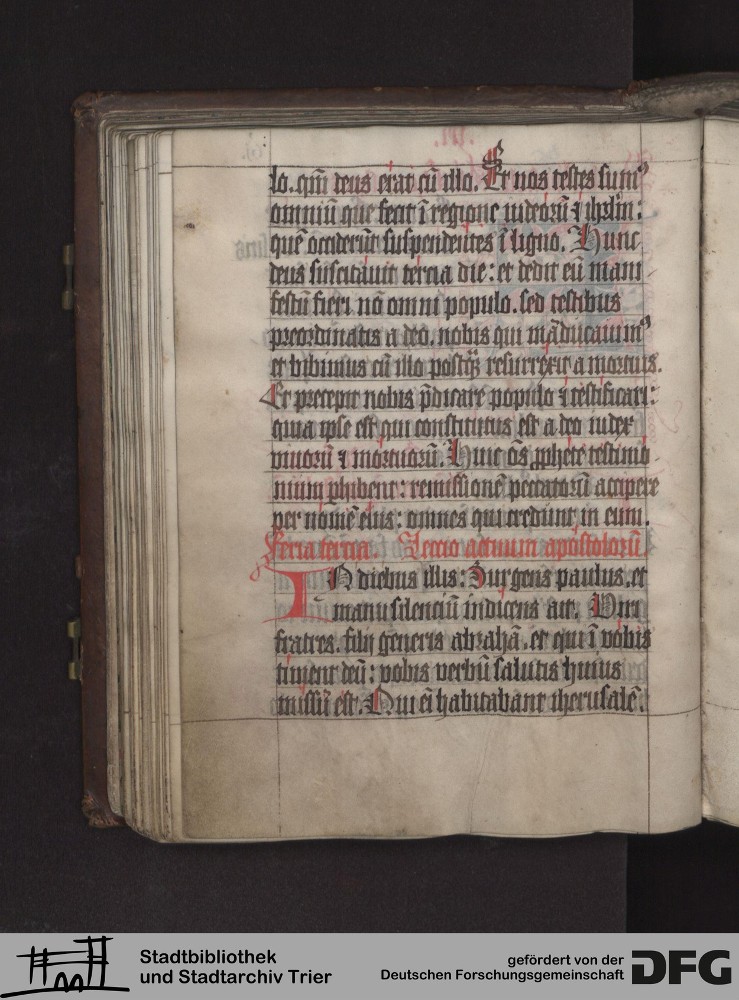 lo. qm̄ deus erat cū illo. Et nos testes sumꝰ
omniū que fecit ī regione iudeorū ⁊ ihrl̄m:
quē occiderūt suspendentes ī ligno. Hunc
deus suscitauit tercia die: et dedit eū mani
festū fieri nō omni populo. sed testibus
preordinatis a deo. nobis qui māducauimꝰ
et bibimus cū illo postq̄ꝫ resurrexit a mortuis.
Et precepit nobis p̄dicare populo ⁊ testificari:
quia ipse est qui constitutus est a deo iudex
viuorū ⁊ mortuorū. Huic om̄s ꝓphete testimo
nium phibent: remissionē peccatorū accipere
per nomē eius: omnes qui credunt in eum.
Feria tercia. Leccio actuum apostolorū
IN diebus illis: Surgens paulus. et
manu silenciū indicens ait. Viri
fratres. filij generis abrahā. et qui ī vobis
timent deū: vobis verbū salutis huius
missū est. Qui ēī habitabant iherusalē.
Stadtbibliothek
und Stadtarchiv Trier
gefördert von der
Deutschen Forschungsgemeinschaft
DFG